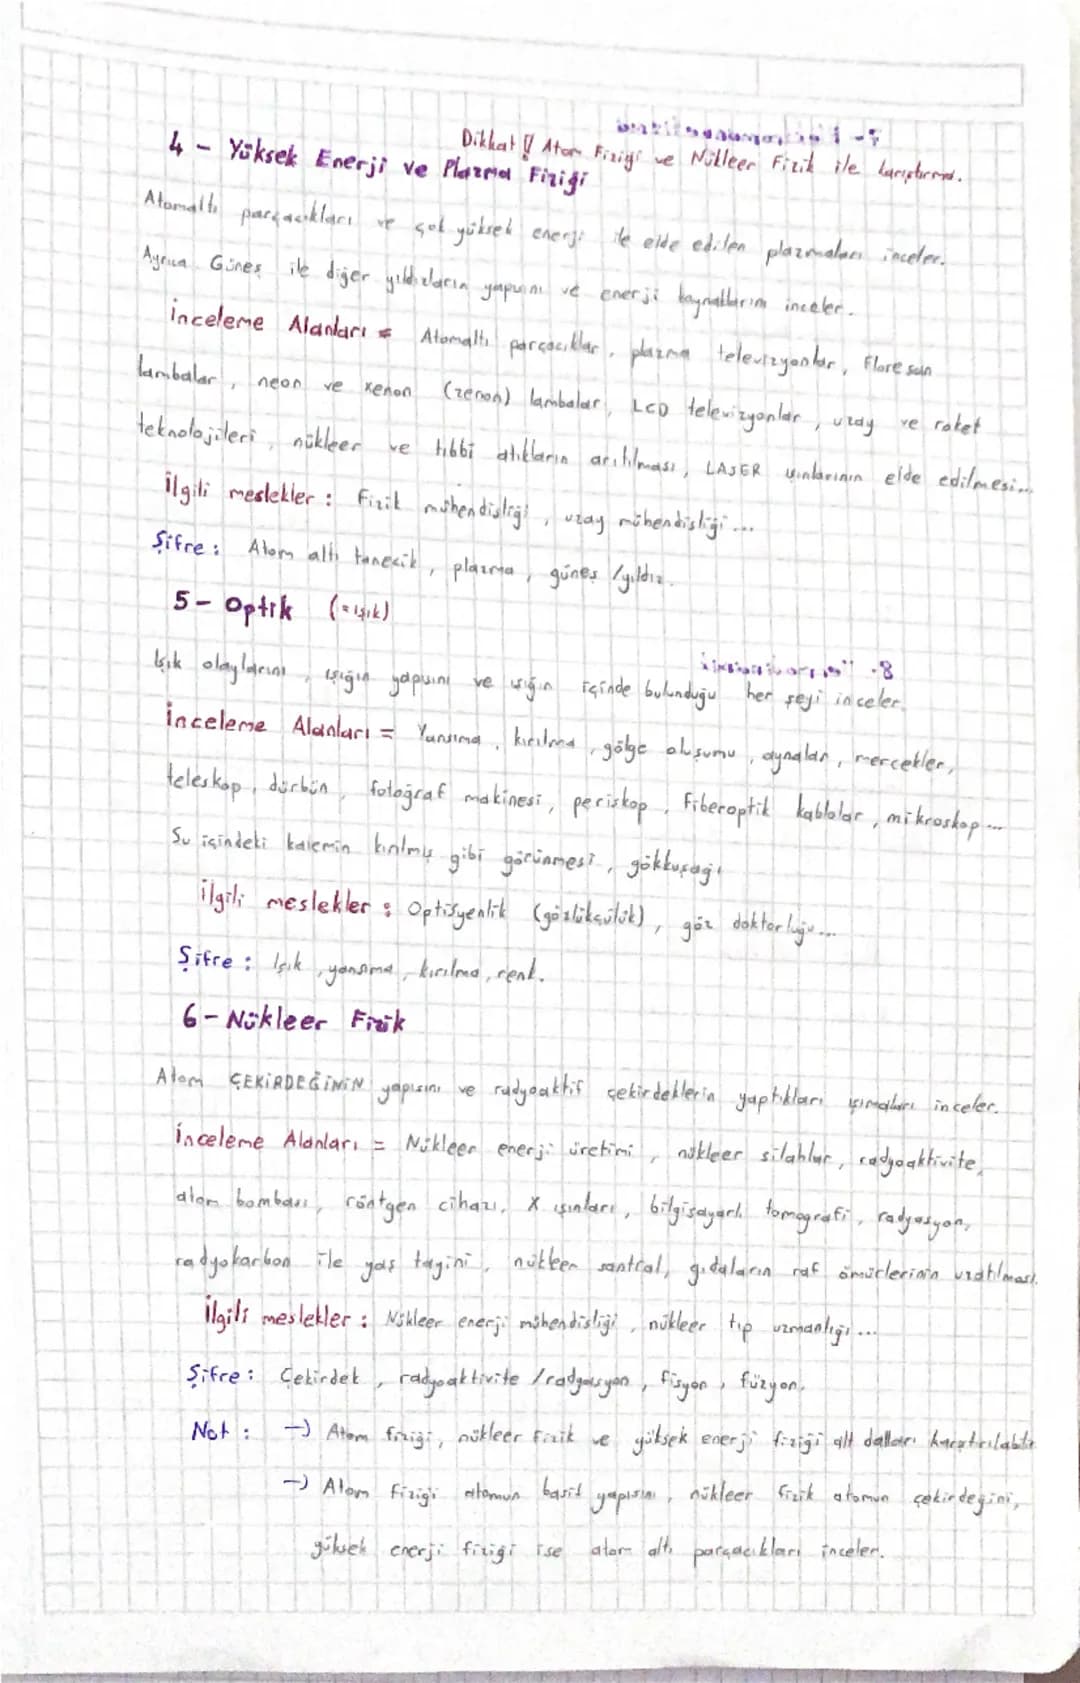 Dikkat!! Atom Fiziği ve Nükleer Fizik ile karıştırma.
4 - Yüksek Enerji ve Plazma Fiziği
Atomaltı parçacıkları ve çok yüksek enerji ile elde edilen plazmaları inceler.
Ayrıca Güneş ile diğer yıldızların yapısını ve enerji kaynaklarını inceler.
İnceleme Alanları = Atomaltı parçacıklar, plazma televizyonlar, Floresan
lambalar, neon ve xenon (zenon) lambalar, LCD televizyonlar, uzay ve roket
teknolojileri, nükleer ve tıbbi atıkların arıtılması, LASER ışınlarının elde edilmesi...
İlgili meslekler : Fizik mühendisliği, uzay mühendisliği...
Şifre : Atom altı tanecik, plazma, güneş /yıldız.
5 - Optik (=ışık)
Işık olaylarını, ışığın yapısını ve ışığın içinde bulunduğu her şeyi inceler.
İnceleme Alanları = Yansıma, kırılma, gölge oluşumu, aynalar, mercekler,
teleskop, dürbün, fotoğraf makinesi, periskop, Fiberoptik kablolar, mikroskop...
Su içindeki kalemin kırılmış gibi görünmesi, gökkuşağı
İlgili meslekler : Optisyenlik (gözlükçülük), göz doktorluğu...
Şifre : Işık, yansıma, kırılma, renk.
6 - Nükleer Fizik
Atom ÇEKİRDEĞİNİN yapısını ve radyoaktif çekirdeklerin yaptıkları ışımaları inceler.
İnceleme Alanları = Nükleer enerji üretimi, nükleer silahlar, radyoaktivite,
atom bombası, röntgen cihazı, X ışınları, bilgisayarlı tomografi, radyasyon,
radyokarbon ile yaş tayini, nükleer santral, gıdaların raf ömürlerinin uzatılması.
İlgili meslekler : Nükleer enerji mühendisliği, nükleer tıp uzmanlığı...
Şifre : Çekirdek, radyoaktivite /radyasyon, fisyon, füzyon.
Not : → Atom fiziği, nükleer fizik ve yüksek enerji fiziği alt dalları karıştırılabilir
→ Atom fiziği atomun basit yapısını, nükleer fizik atomun çekirdeğini,
yüksek enerji fiziği ise atom altı parçacıkları inceler.